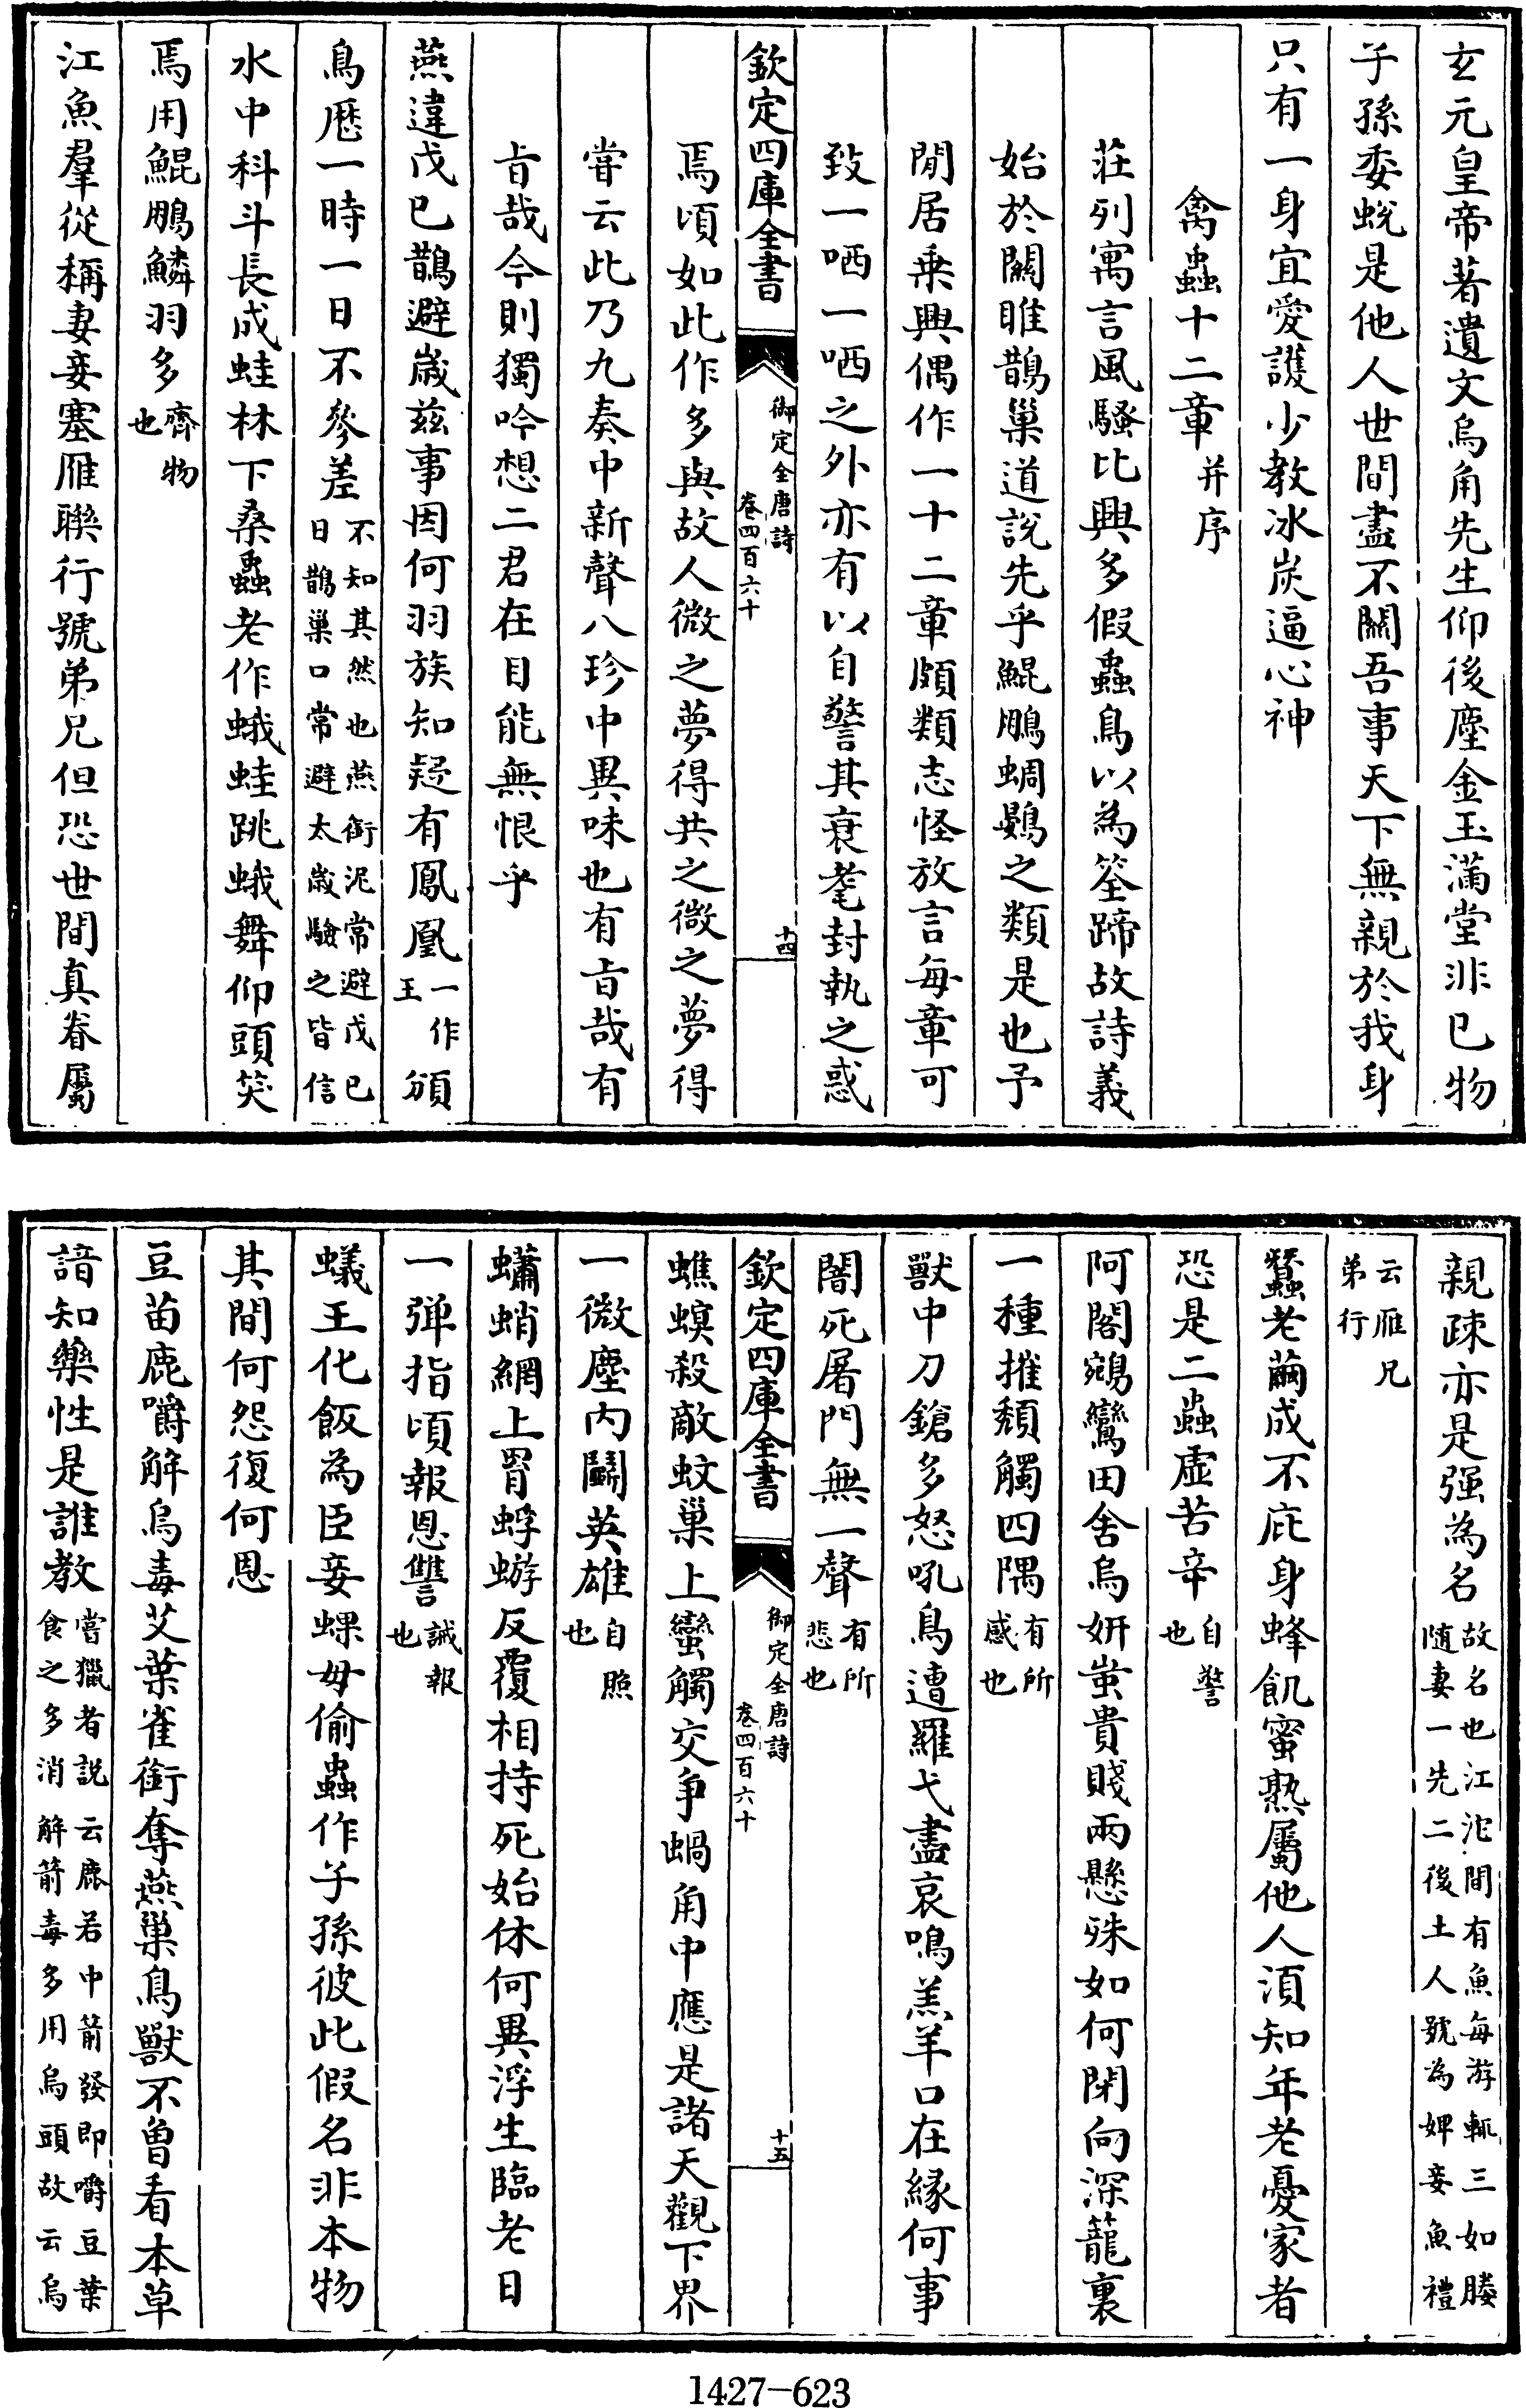 玄元皇帝著遺文烏角先生仰後塵金玉滿堂非已物
子孫委蛻是他人世間盡不關吾事天下無親於我身
只有一身宜愛護少教冰炭逼心神
禽蟲十二章并序
莊列寓言風騷比興多假蟲鳥以為筌蹄故詩義
始於關雎鵲巢道說先乎鯤鵬蜩鷃之類是也予
閒居乗興偶作一十二章頗類志怪放言每章可
致一哂一哂之外亦有以自警其衰耄封執之惑
欽定四庫全書
御定全唐詩
卷四百六十
十四
焉頃如此作多與故人微之夢得共之微之夢得
甞云此乃九奏中新聲八珍中異味也有旨哉有
旨哉今則獨吟想二君在目能無恨乎
燕違戊巳鵲避嵗兹事因何羽族知疑有鳳凰一作頒
王
鳥厯一時一日不參差不知其然也燕銜泥常避戊巳
日鵲巢口常避太嵗驗之皆信
水中科斗長成蛙林下桑蟲老作蛾蛙跳蛾舞仰頭笑
焉用鯤鵬鱗羽多齊物
也
江魚羣從稱妻妾塞雁聯行號弟兄但恐世間真眷屬
親疎亦是强為名故名也江沱間有魚每游輒三如媵
随妻一先二後土人號為婢妾魚禮
云雁兄
弟行
蠶老繭成不庇身蜂飢蜜熟屬他人湏知年老憂家者
恐是二蟲虛苦辛自警
也
阿閣鵷鸞田舍烏妍蚩貴賤兩懸殊如何閉向深籠裏
一種摧頽觸四隅有所
感也
獸中刀鎗多怒吼鳥遭羅弋盡哀鳴羔羊口在緣何事
闇死屠門無一聲有所
悲也
欽定四庫全書
御定全唐詩
卷四百六十
十五
蟭螟殺敵蚊巢上蠻觸交爭蝸角中應是諸天觀下界
一微塵内鬭英雄自照
也
蠨蛸網上罥蜉蝣反覆相持死始休何異浮生臨老日
一弾指頃報恩讐誡報
也
蟻王化飯為臣妾蜾母偷蟲作子孫彼此假名非本物
其間何怨復何恩
豆苗鹿嚼解烏毒艾葉雀銜奪燕巢鳥獸不曽看本草
諳知藥性是誰教嘗獵者説云鹿若中箭發即嚼豆葉
食之多消解箭毒多用烏頭故云烏
1427-623